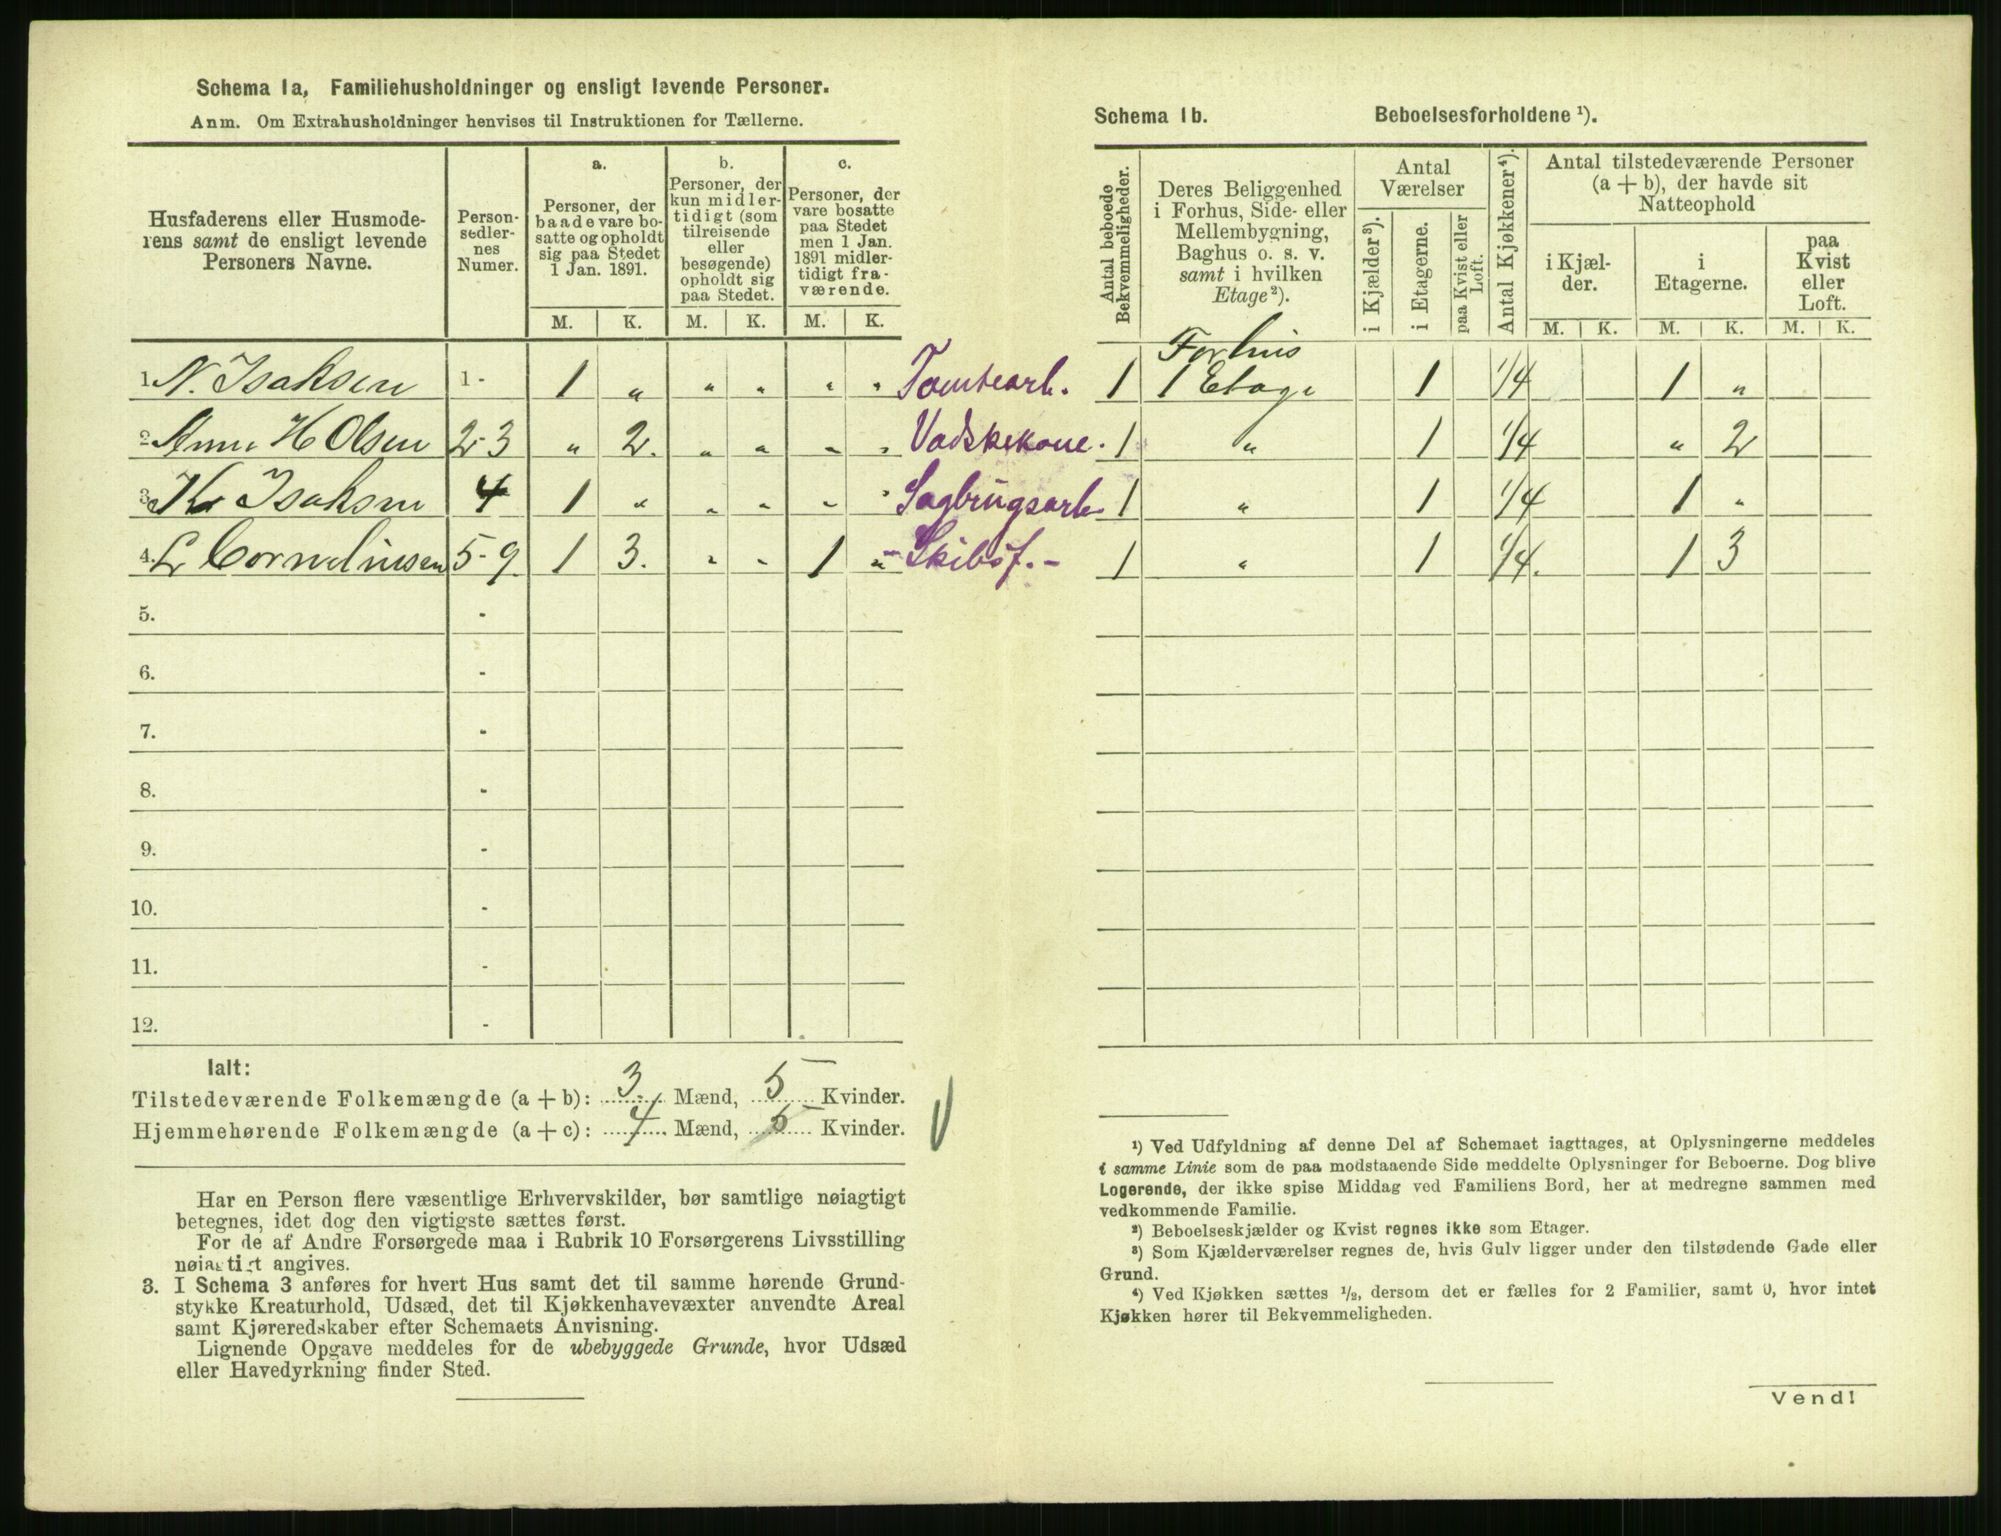 Schema 1a, Familiehusholdninger og ensligt levende Personer.
Anm. Om Extrahusholdninger henvises til Instruktionen for Tællerne.
Husfaderens eller Husmoderens samt de ensligt levende Personers Navne.
Personsedlernes Numer.
a. Personer, der baade vare bosatte og opholdt sig paa Stedet 1 Jan. 1891.
b. Personer, der kun midlertidigt (som tilreisende eller besøgende) opholdt sig paa Stedet.
c. Personer, der vare bosatte paa Stedet men 1 Jan. 1891 midlertidigt fraværende.
M. K. M. K. M. K.
1. N. Isaksen 1- 1 „ „ „ „ „ Tomtearb.
2. Anne H Olsen 2-3 „ 2. „ „ „ „ Vadskekone.
3. Isaksen 4 1 „ „ „ „ „ Sagbrugsarb.
4. L Corneliusen 5-9. 1 3. „ „ 1 „ Skibsf.-
5. -
6. -
7. -
8. -
9. -
10. -
11. -
12. -
Ialt:
Tilstedeværende Folkemængde (a + b): 3 Mænd, 5 Kvinder.
Hjemmehørende Folkemængde (a + c): 4 Mænd, 5 Kvinder.
Har en Person flere væsentlige Erhvervskilder, bør samtlige nøiagtigt
betegnes, idet dog den vigtigste sættes først.
For de af Andre Forsørgede maa i Rubrik 10 Forsørgerens Livsstilling
nøiagtigt angives.
3. I Schema 3 anføres for hvert Hus samt det til samme hørende Grund-
stykke Kreaturhold, Udsæd, det til Kjøkkenhavevæxter anvendte Areal
samt Kjøreredskaber efter Schemaets Anvisning.
Lignende Opgave meddeles for de ubebyggede Grunde, hvor Udsæd
eller Havedyrkning finder Sted.
Schema 1b. Beboelsesforholdene ¹).
Antal beboede Bekvemmeligheder.
Deres Beliggenhed i Forhus, Side- eller Mellembygning, Baghus o. s. v. samt i hvilken Etage²).
Antal Værelser
i Kjælder³).
i Etagerne.
paa Kvist eller Loft.
Antal Kjøkkener⁴).
Antal tilstedeværende Personer (a + b), der havde sit Natteophold
i Kjælder.
i Etagerne.
paa Kvist eller Loft.
M. K. M. K. M. K.
Forhus
1 1 Etage 1 1/4 1 „
1 „ 1 1/4 „ 2
1 „ 1 1/4 1 „
1 „ 1 1/4. 1 3
¹) Ved Udfyldning af denne Del af Schemaet iagttages, at Oplysningerne meddeles
i samme Linie som de paa modstaaende Side meddelte Oplysninger for Beboerne. Dog blive
Logerende, der ikke spise Middag ved Familiens Bord, her at medregne sammen med
vedkommende Familie.
²) Beboelseskjælder og Kvist regnes ikke som Etager.
³) Som Kjælderværelser regnes de, hvis Gulv ligger under den tilstødende Gade eller
Grund.
⁴) Ved Kjøkken sættes ½, dersom det er fælles for 2 Familier, samt 0, hvor intet
Kjøkken hører til Bekvemmeligheden.
Vend!